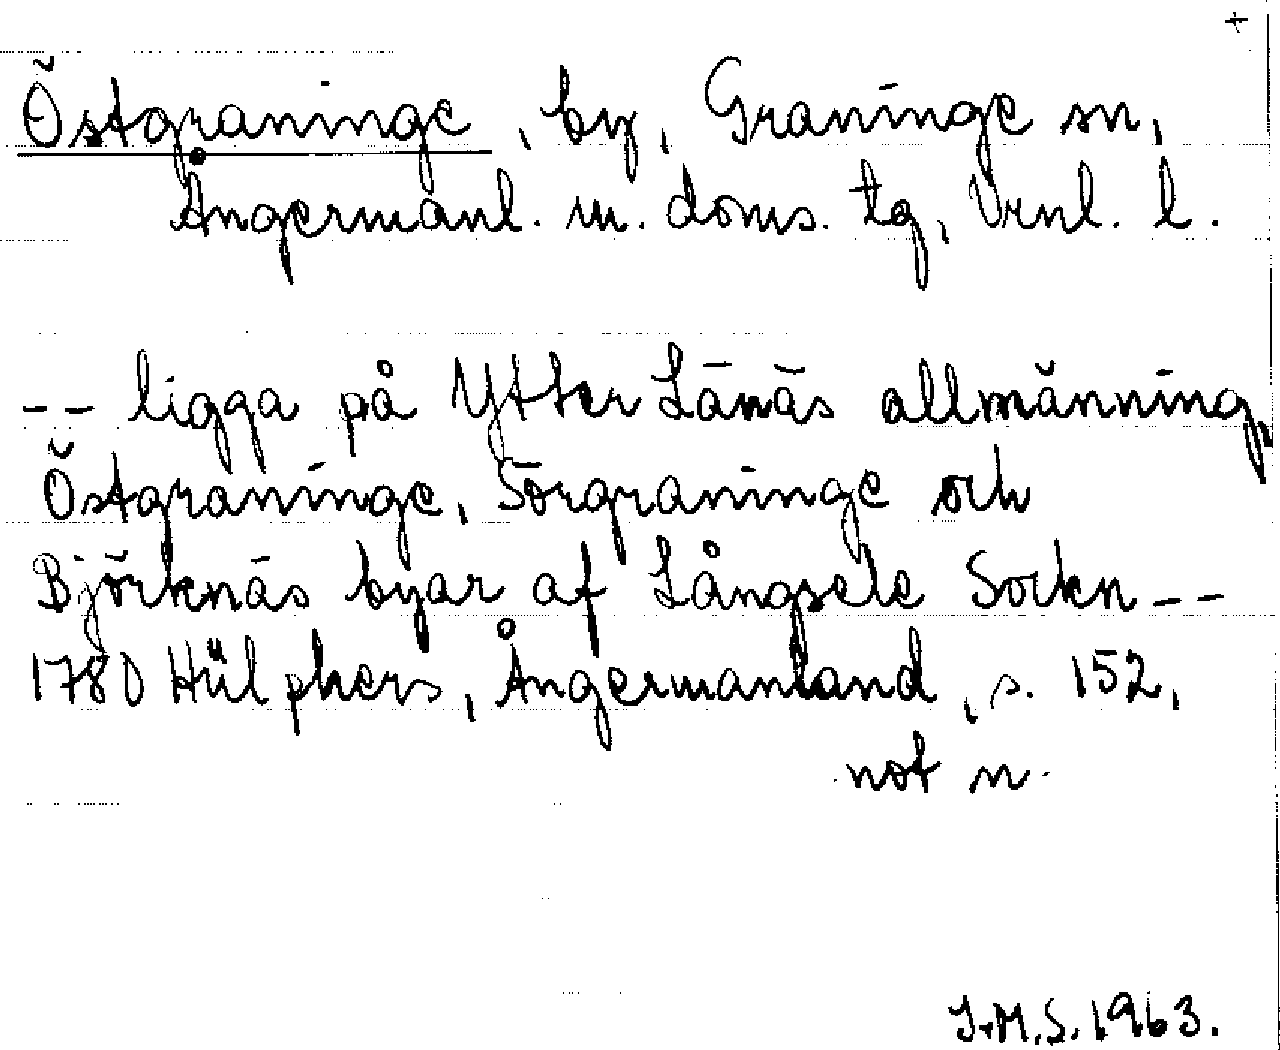 +
Östgraninge, by, Graninge sn,
Ångermanl. m. doms. tg, Vrnl. l.
-- ligga på Ytter Länäs allmänning,
Östgraninge, Sörgraninge och
Björknäs byar af Långsele Sockn --
1780 Hülphers, Ångermanland, s. 152,
not n.
I.M.S. 1963.